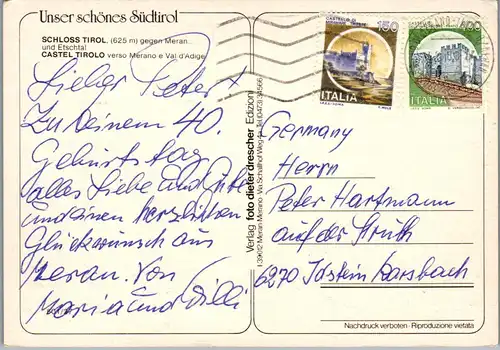 Unser schönes Südtirol
SCHLOSS TIROL. (625 m) gegen Meran
und Etschtal
CASTEL TIROLO verso Merano e Val d'Adige
Lieber Peter!
Zu Deinem 40.
Geburtstag
alles Liebe und Gute
und einen herzlichen
Glückwunsch aus
Meran. Von
Maria und Willi
Verlag foto dieter drescher Edizioni
I-39012 Meran Merano · Via Schallhof Weg
CASTELLO DI
150
ITALIA
ITALIA
Germany
Herrn
Peter Hartmann
auf der Struth
6270 Idstein
Nachdruck verboten · Riproduzione vietata